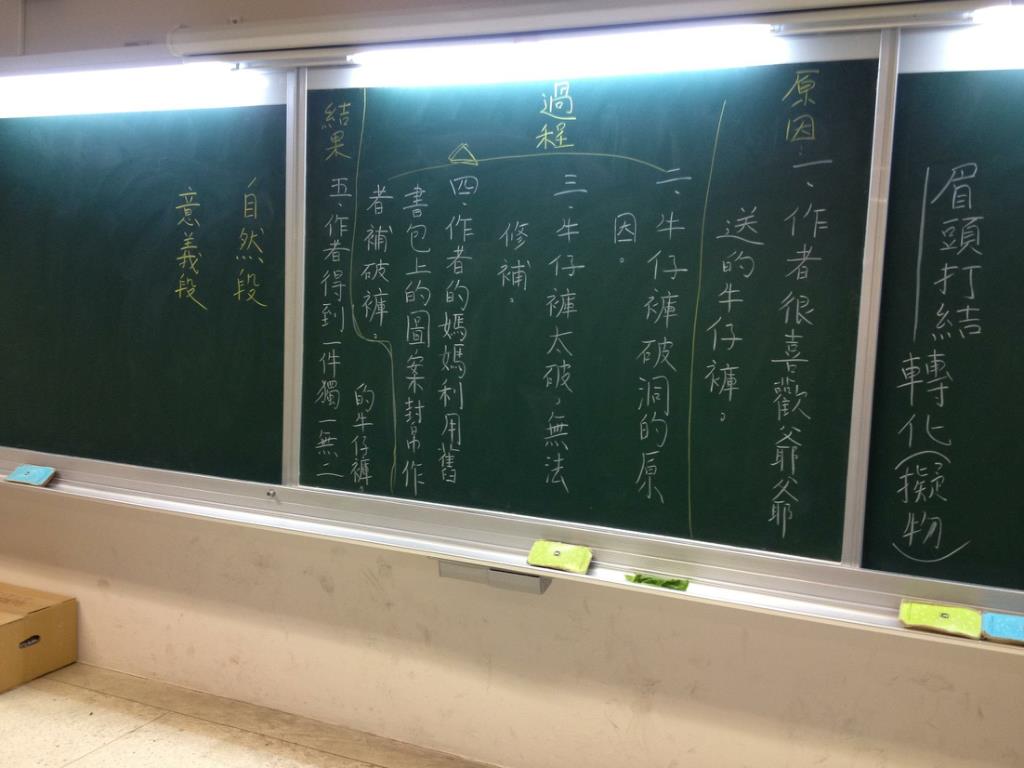 眉頭打結
轉化(擬物)
原因
一、作者很喜歡爺爺
送的牛仔褲。
過程
二、牛仔褲破洞的原
因。
三、牛仔褲太破,無法
修補。
四、作者的媽媽利用舊
書包上的圖案封帛作
者補破褲。
結果
五、作者得到一件獨一無二
的牛仔褲。
自然段
意義段